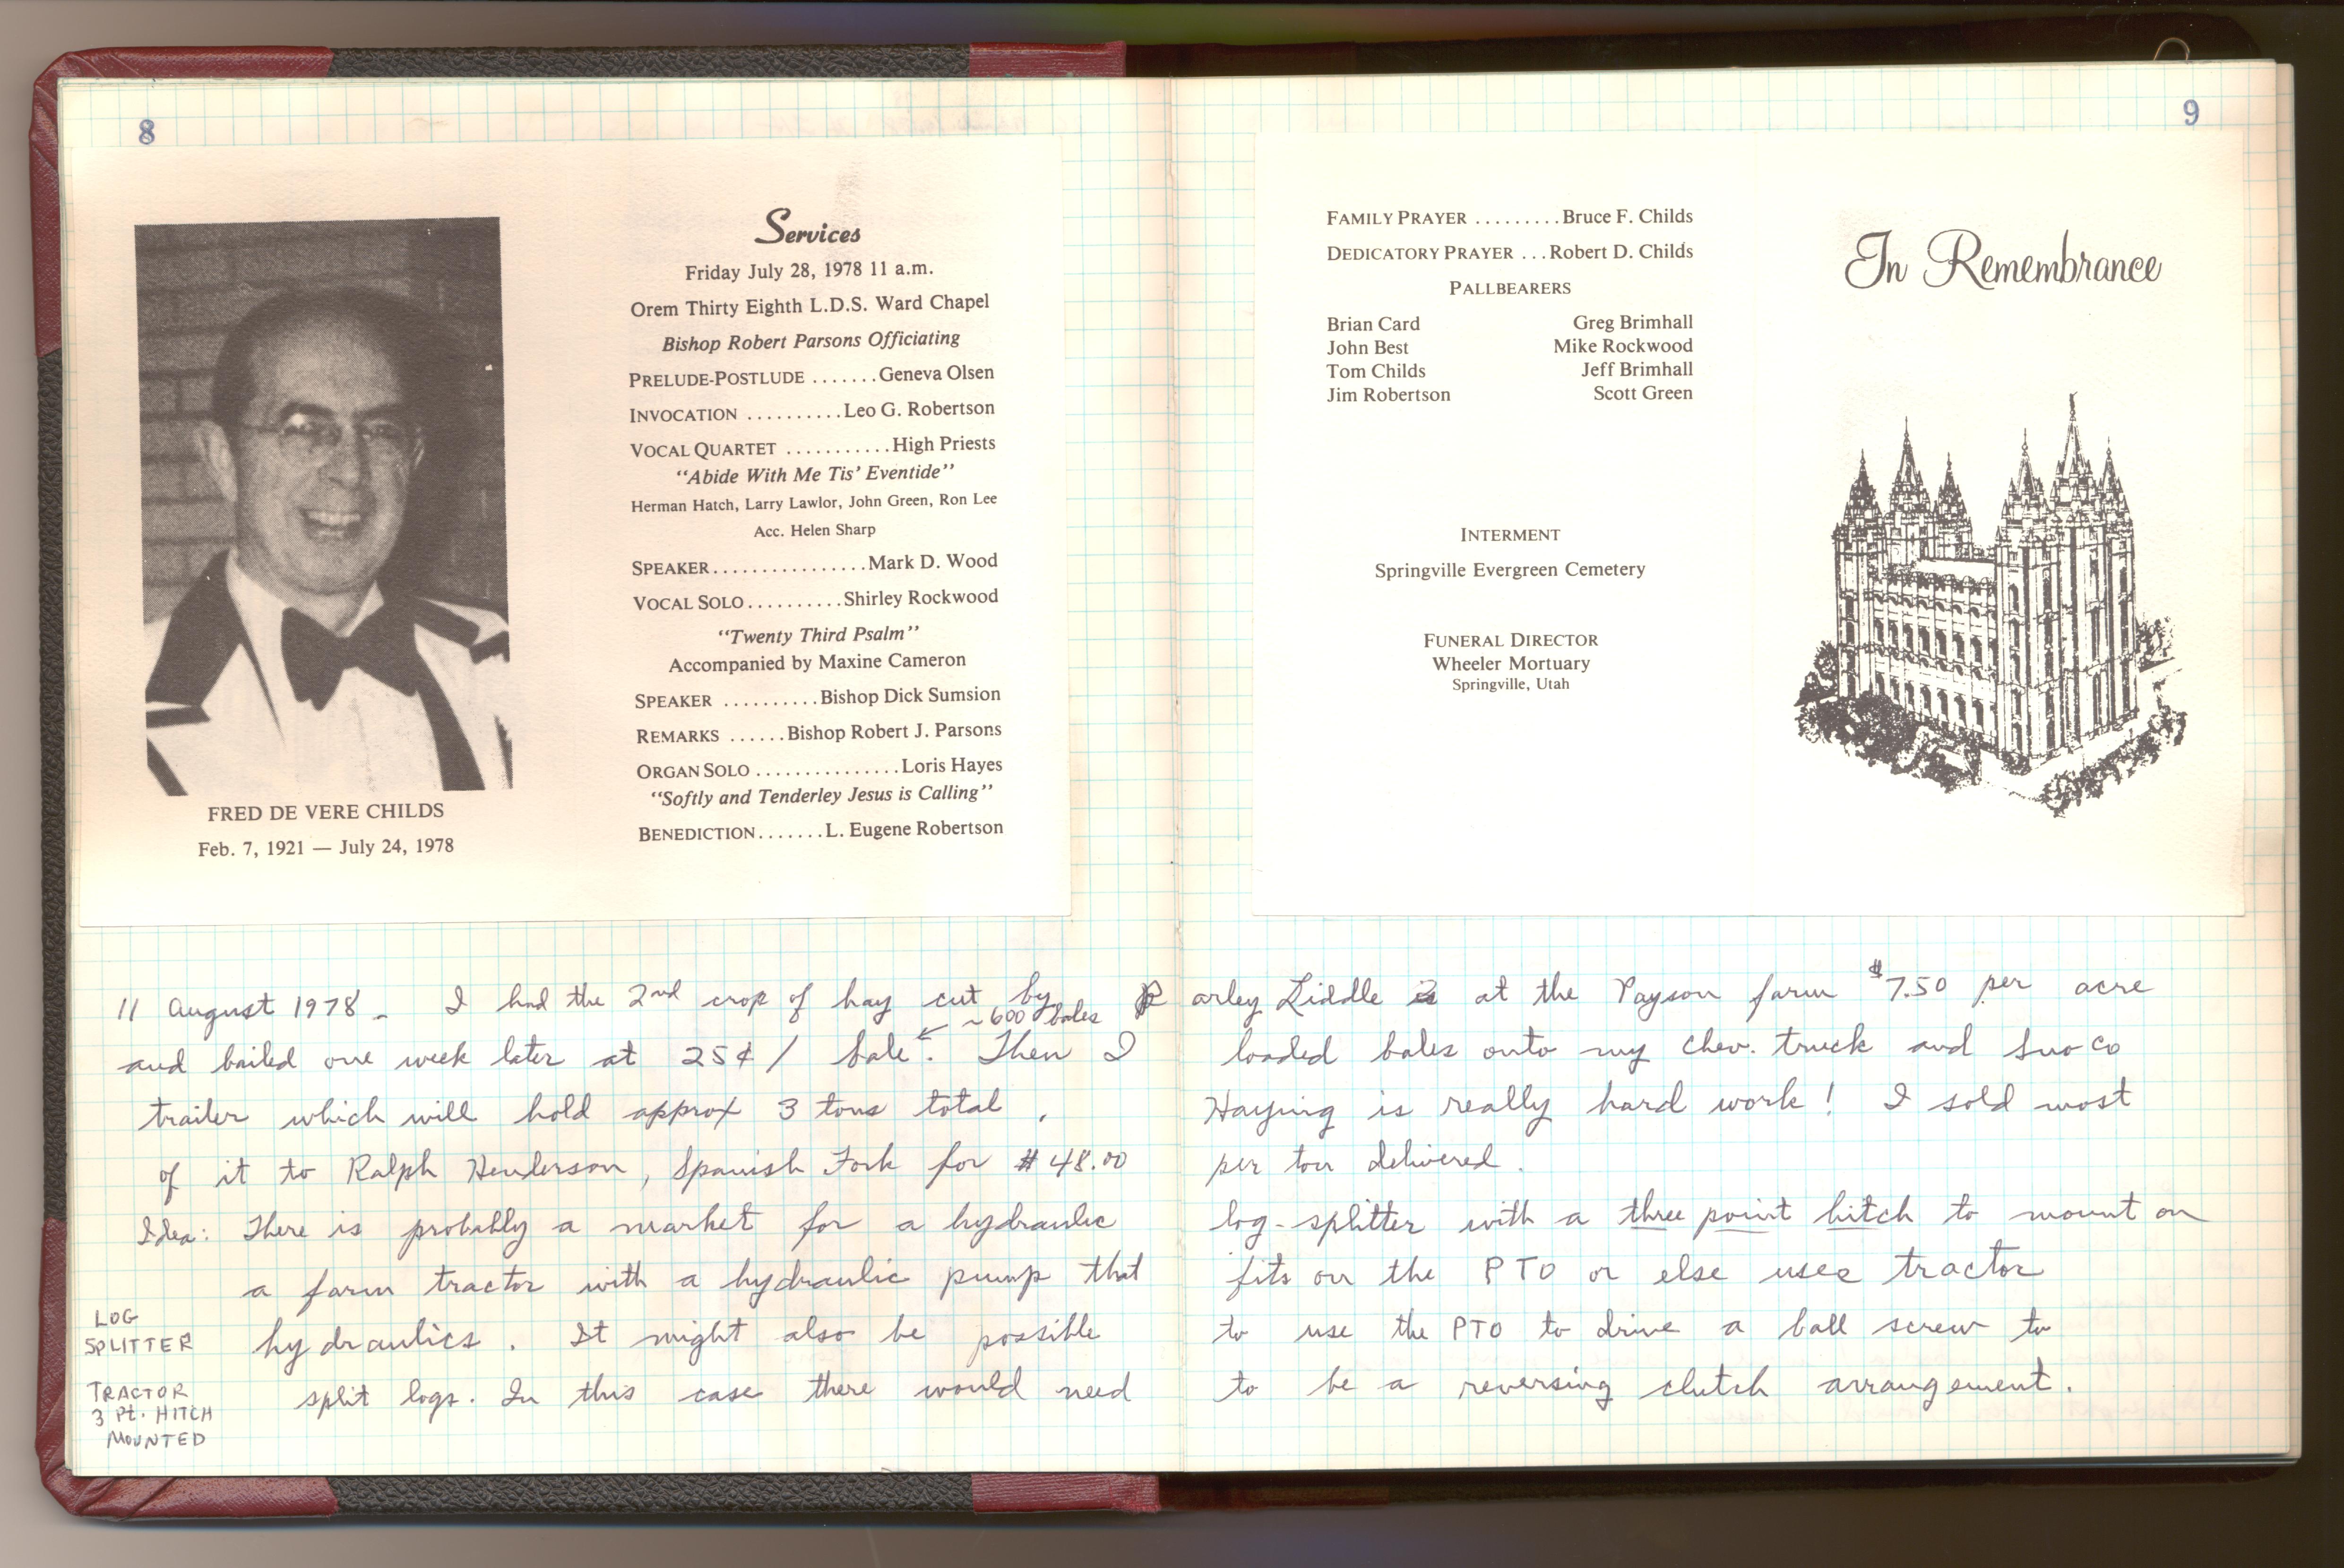 8
Services
Friday July 28, 1978 11 a.m.
Orem Thirty Eighth L.D.S. Ward Chapel
Bishop Robert Parsons Officiating
PRELUDE-POSTLUDE .......Geneva Olsen
INVOCATION ..........Leo G. Robertson
VOCAL QUARTET ...........High Priests
"Abide With Me Tis' Eventide"
Herman Hatch, Larry Lawlor, John Green, Ron Lee
Acc. Helen Sharp
SPEAKER................Mark D. Wood
VOCAL SOLO..........Shirley Rockwood
"Twenty Third Psalm"
Accompanied by Maxine Cameron
SPEAKER ..........Bishop Dick Sumsion
REMARKS ......Bishop Robert J. Parsons
ORGAN SOLO ...............Loris Hayes
"Softly and Tenderley Jesus is Calling"
BENEDICTION.......L. Eugene Robertson
FRED DE VERE CHILDS
Feb. 7, 1921 — July 24, 1978
9
FAMILY PRAYER .........Bruce F. Childs
DEDICATORY PRAYER ...Robert D. Childs
PALLBEARERS
Brian Card Greg Brimhall
John Best Mike Rockwood
Tom Childs Jeff Brimhall
Jim Robertson Scott Green
INTERMENT
Springville Evergreen Cemetery
FUNERAL DIRECTOR
Wheeler Mortuary
Springville, Utah
In Remembrance
11 August 1978 - I had the 2nd crop of hay cut by Parley Liddle at the Payson farm $7.50 per acre
~600 bales
and bailed one week later at 25¢/ bale. Then I loaded bales onto my chev. truck and Suoco
trailer which will hold approx 3 tons total. Haying is really hard work! I sold most
of it to Ralph Henderson, Spanish Fork for $48.00 per ton delivered.
Idea: There is probably a market for a hydraulic log-splitter with a three point hitch to mount on
a farm tractor with a hydraulic pump that fits on the PTO or else uses tractor
LOG
SPLITTER
hydraulics. It might also be possible to use the PTO to drive a ball screw to
TRACTOR
3 Pt. HITCH
MOUNTED
split logs. In this case there would need to be a reversing clutch arrangement.